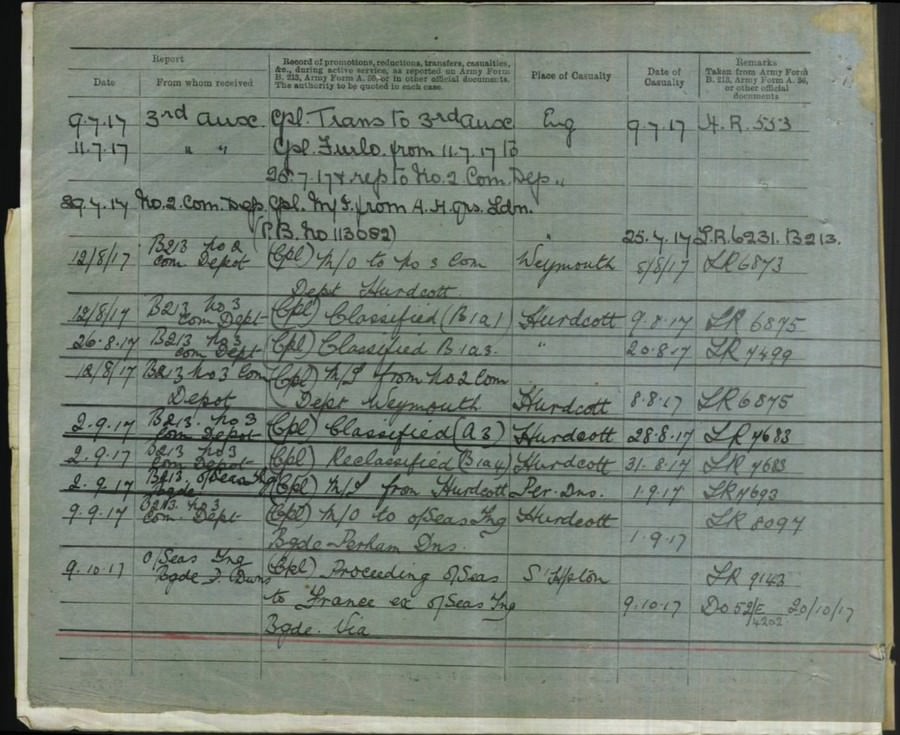 Report
Record of promotions, reductions, transfers, casualties, &c., during active service, as reported on Army Form B. 213, Army Form A. 36, or in other official documents. The authority to be quoted in each case.
Place of Casualty
Date of Casualty
Remarks Taken from Army Form B. 213, Army Form A. 36, or other official documents
Date From whom received
9.7.17 3rd Auxc. Cpl. Trans to 3rd Auxc Eng 9.7.17 H.R. 553
11.7.17 " " Cpl. Furlo. from 11.7.17 to
25.7.17 & rep to No. 2 Com. Dep. "
No. 2. Com. Dep. Cpl. M/I. from A. H. qrs. Ldn.
(P.B. No 113082) " 25.7.17 L.R. 6231. B213.
12/8/17 B213 No 2 Com. Depot (Cpl) M/O to No 3 Com Weymouth 8/8/17 LR 6873
Dept Hurdcott.
12/8/17 B213 No 3 Com Dept (Cpl) Classified (B1a1) Hurdcott 9.8.17 LR 6875
26.8.17 B213 No 3 Com Dept (Cpl) Classified B1a3. " 20.8.17 LR 7499
12/8/17 B213 No 3 Com (Cpl) M/I from No 2 Com
Depot Dept Weymouth Hurdcott 8.8.17 LR 6875
2.9.17 B213. No 3 Com Depot (Cpl) Classified (A3) Hurdcott 28.8.17 LR 7683
2.9.17 B213 No 3 Com Depot (Cpl) Reclassified (B1a4) Hurdcott 31.8.17 LR 7683
2.9.17 B213. O/Seas Tng Bgde (Cpl) M/I from Hurdcott Per. Dns. 1.9.17 LR 7693
9.9.17 B213. No 3 Com. Dept (Cpl) M/O to O/Seas Tng Hurdcott LR 8097
Bgde Perham Dns. 1.9.17
9.10.17 O/Seas Tng Bgde (Cpl) Proceeding O/Seas S'Hpton LR 9143
to France ex O/Seas Tng 9.10.17 Do 52/E 4202 20/10/17
Bgde. Via